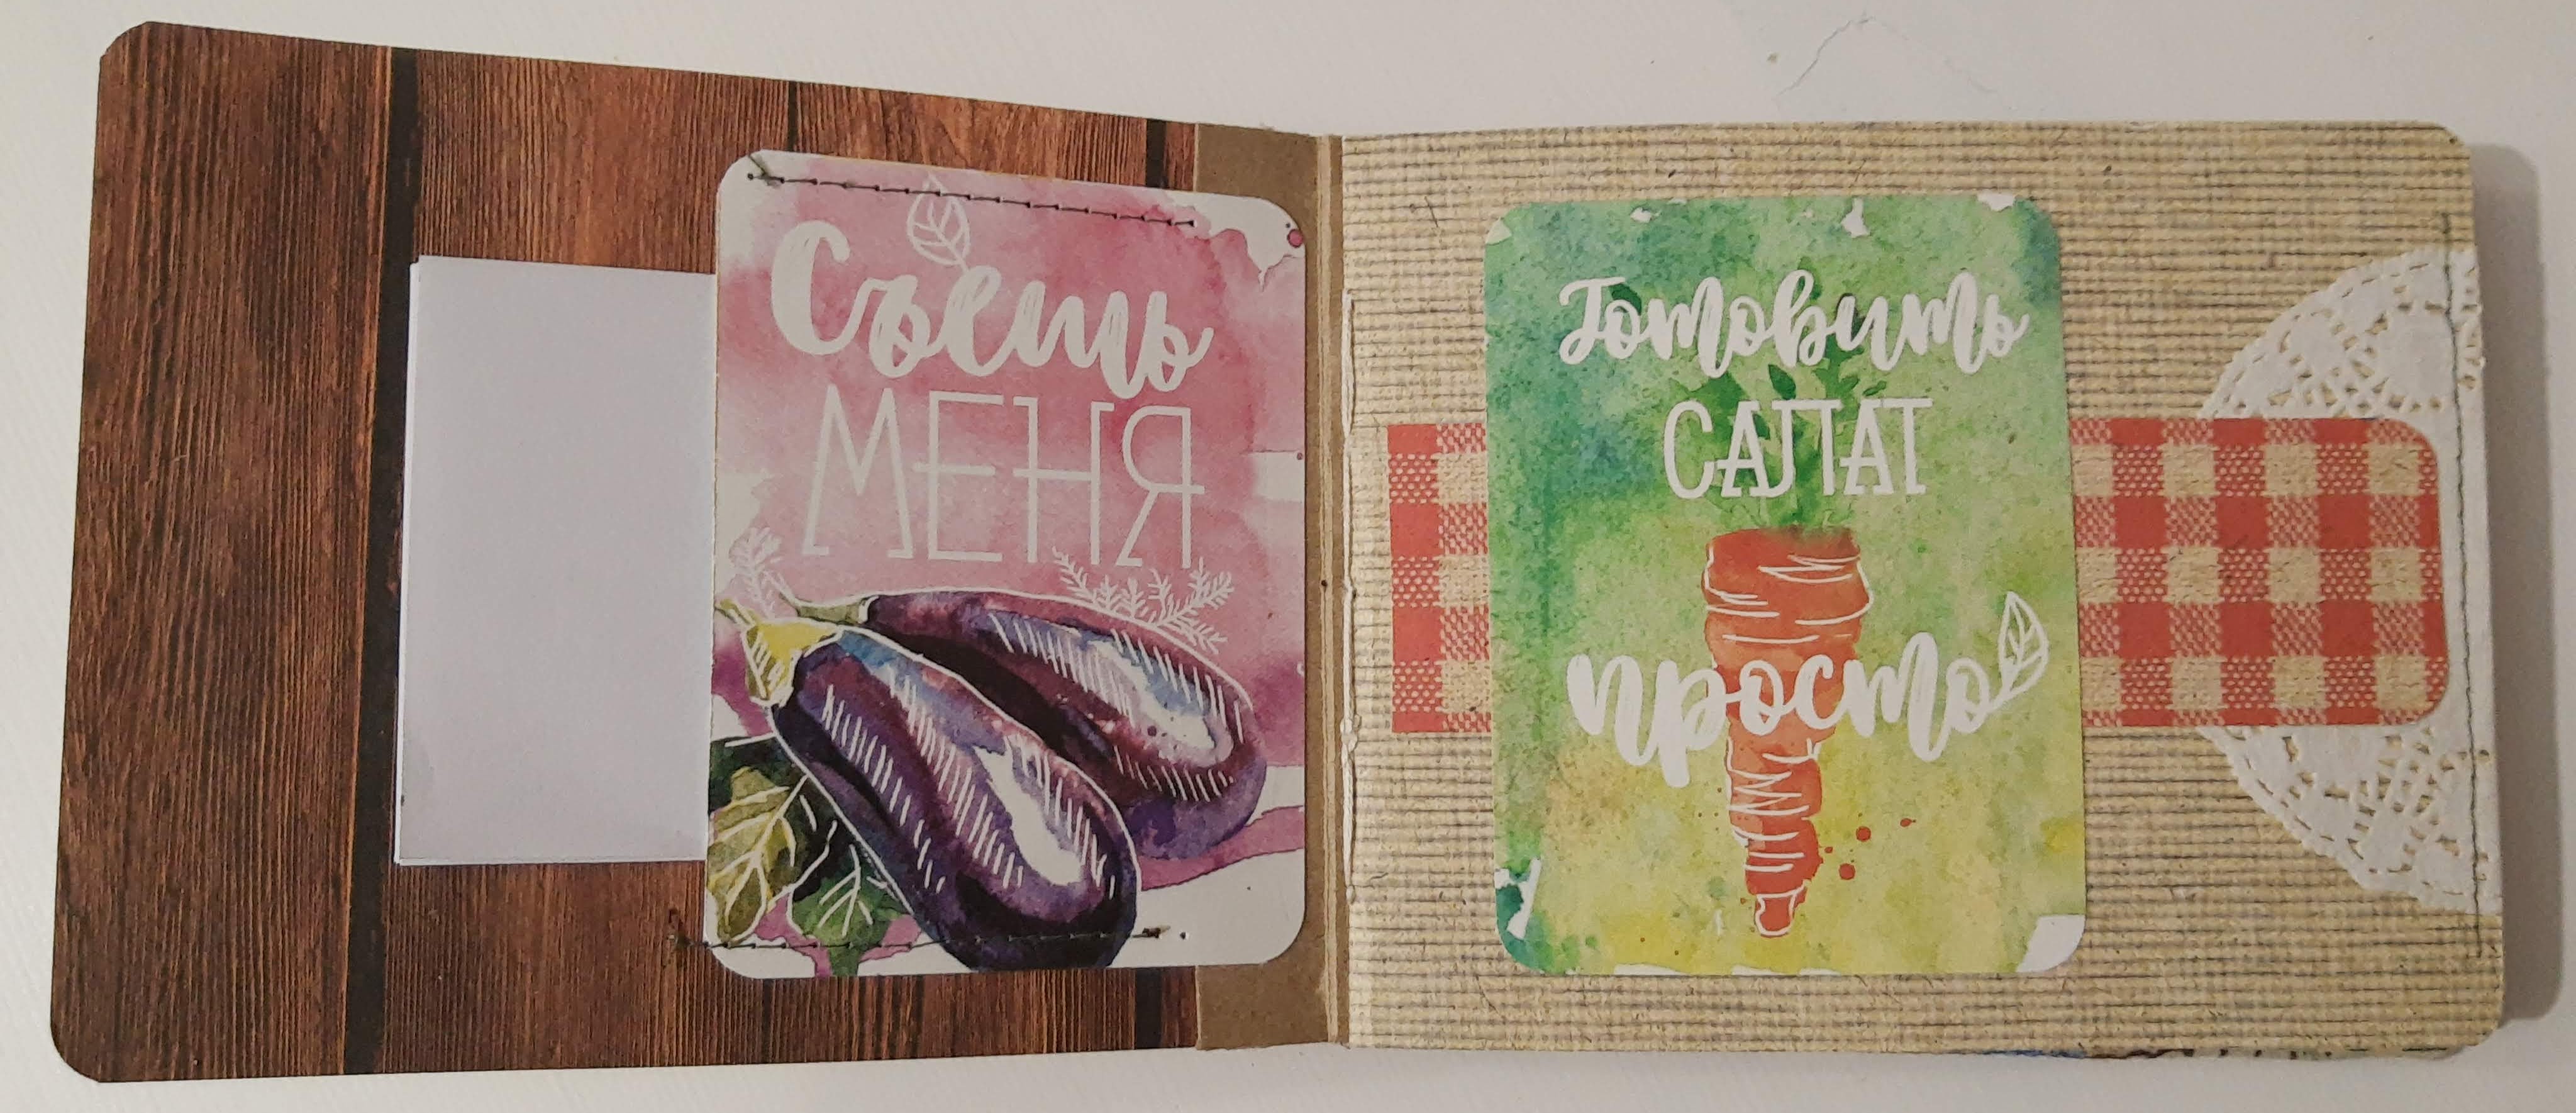 Съешь
МЕНЯ
Готовить
САЛАТ
просто